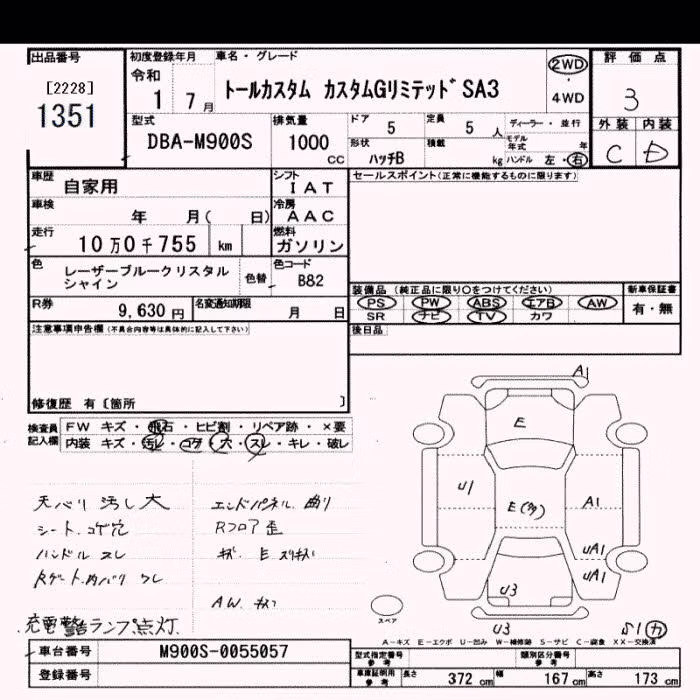 出品番号
[2228]
1351
初度登録年月
令和
1 7月
車名・グレード
トールカスタム カスタムGリミテッド SA3
2WD
・
4WD
評価点
3
外装 内装
C D
型式
DBA-M900S
排気量
1000
CC
ドア 5
定員 5 人
形状 ハッチB
積載 kg
ディーラー・並行
モデル年式 年
ハンドル 左・右
車歴 自家用
シフト
IAT
車検 年 月( 日)
冷房
AAC
走行 10万0千755 km
燃料
ガソリン
色 レーザーブルークリスタル
シャイン
色替
色コード
B82
R券 9,630円
名変通知期限 月 日
セールスポイント(正常に機能するものに限ります)
装備品 (純正品に限り○をつけてください)
PS PW ABS エアB AW
SR ナビ TV カワ
新車保証書
有・無
後日品
注意事項申告欄(不具合内容等は具体的に記入して下さい)
修復歴 有〔箇所 〕
検査員
記入欄
FW キズ・飛石・ヒビ割・リペア跡・×要
内装 キズ・汚レ・コゲ・穴・スレ・キレ・破レ
天バリ 汚し大
シート、コゲ穴
ハンドル スレ
Rゲート内バリ ワレ
充電警告ランプ点灯
エンドパネル 曲り
Rフロア 歪
キズ E スリキズ
AW キズ
A1
E
U1
E(多)
A1
UA1
UA1
U3
U3
S1 カ
スペア
A-キズ E-エクボ U-凹み W-補修跡 S-サビ C-腐食 XX-交換済
車台番号 M900S-0055057
登録番号
型式指定番号
参考
類別区分番号
参考
車庫証明用
参考
長さ 372cm 幅 167cm 高さ 173cm